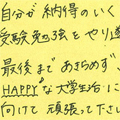 自分が納得のいく
受験勉強をやり遂
最後まであきらめず、
HAPPYな大学生活に
向けて頑張って下さい